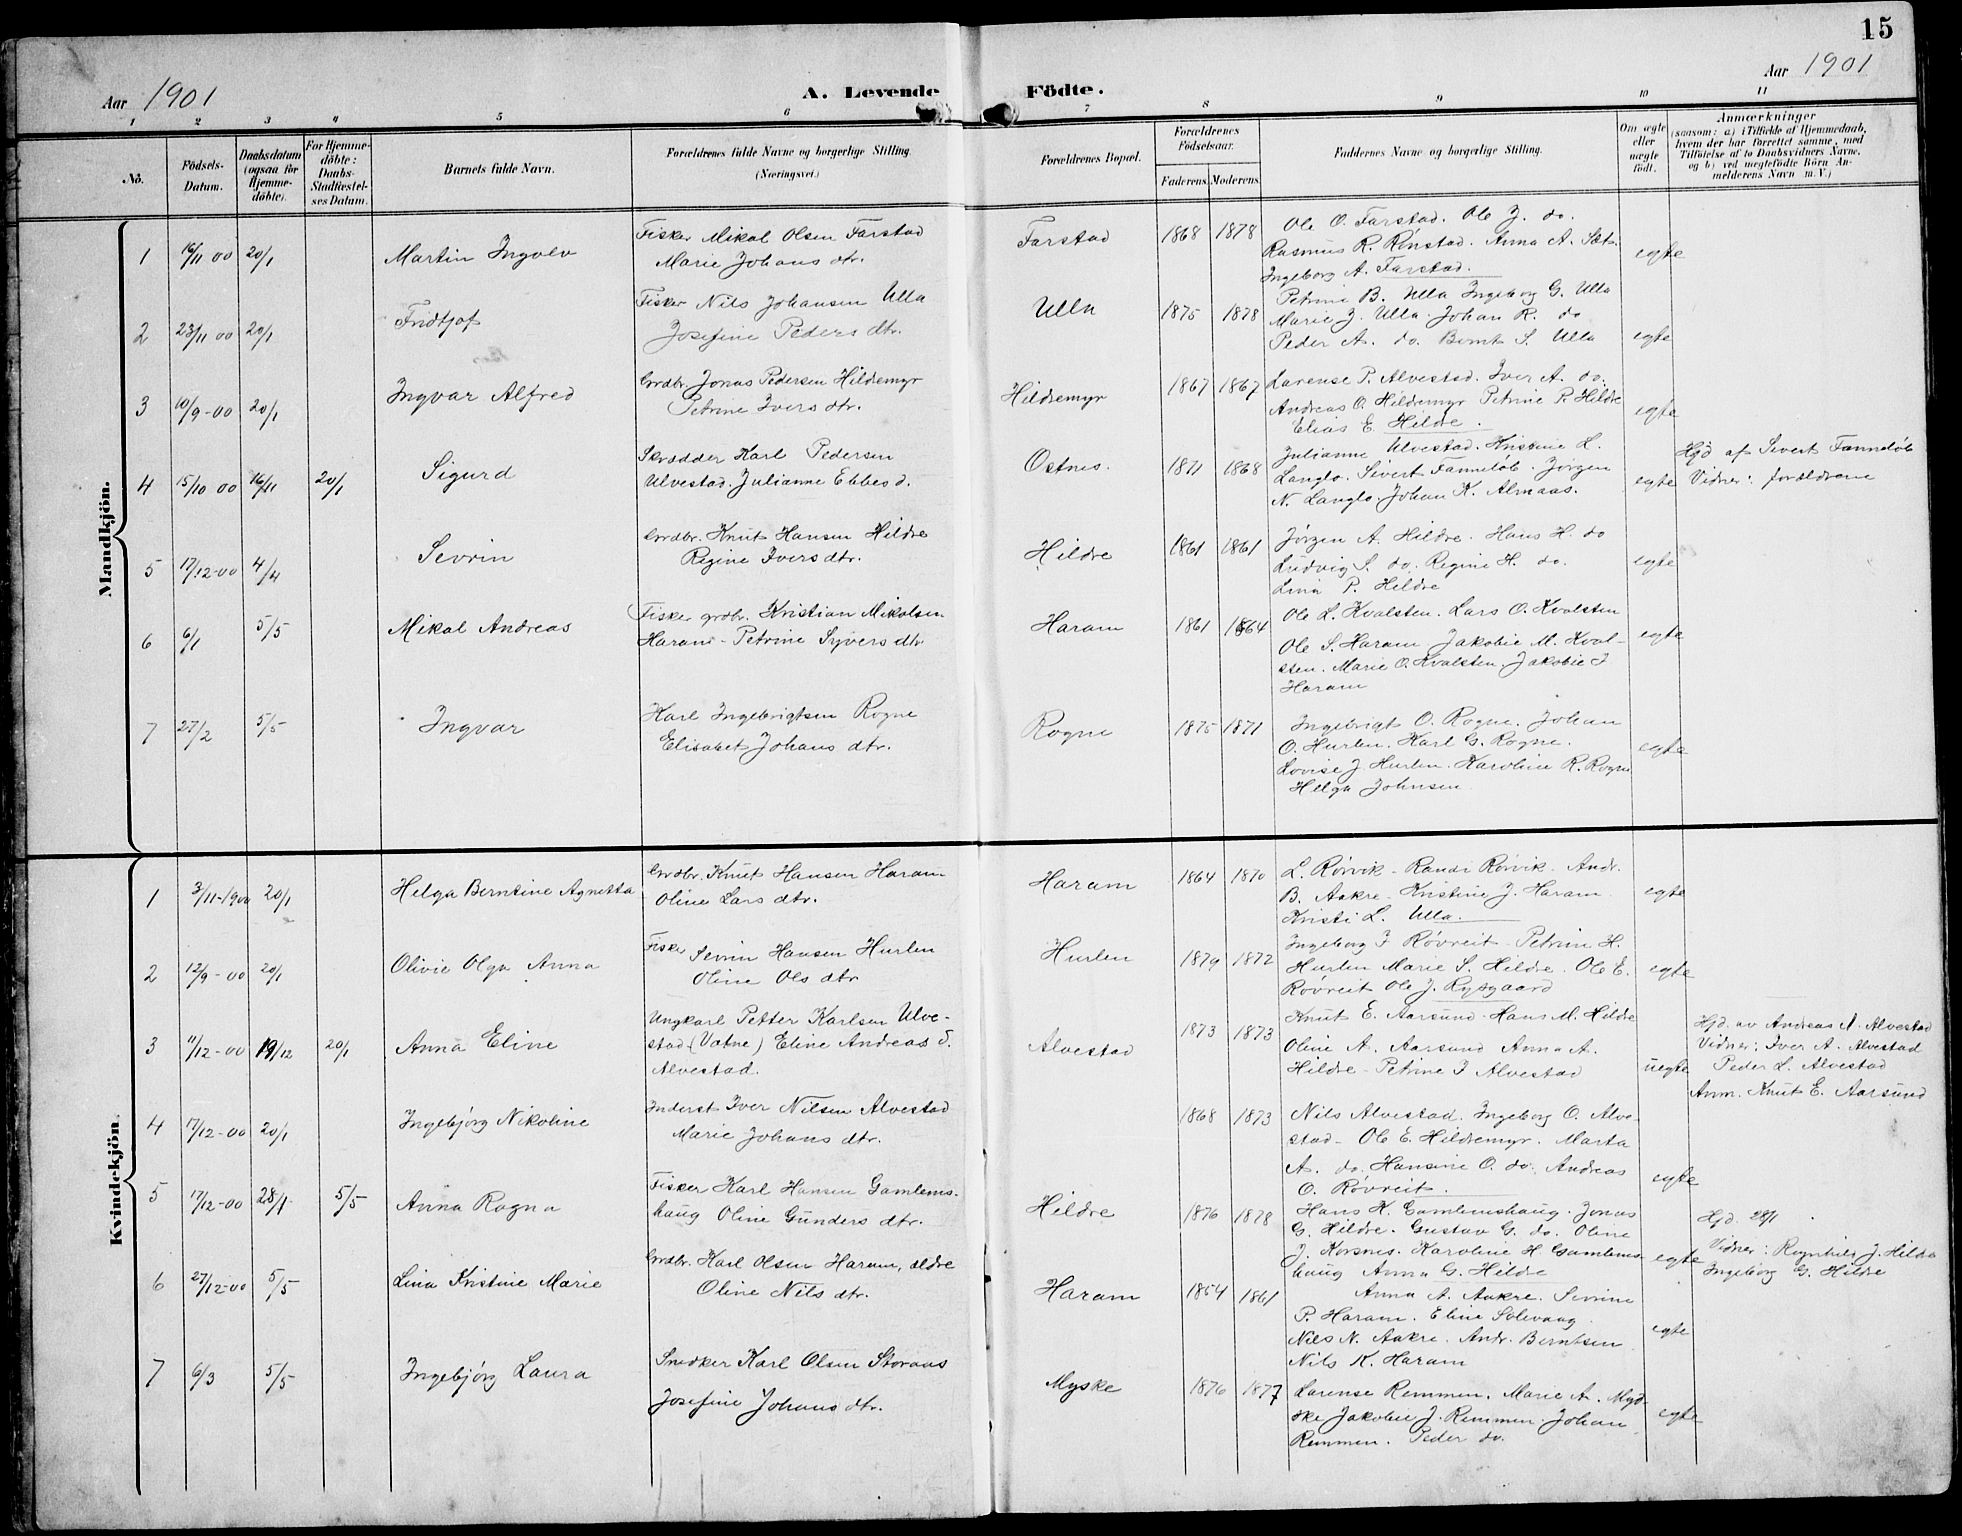 15
Aar 1901
A. Levende Födte.
Aar 1901
1 2 3 4 5 6 7 8 9 10 11
No.
Födsels-Datum.
Daabsdatum (ogsaa for Hjemme-döbte).
For Hjemme-döbte: Daabs-Stadfæstel-ses Datum.
Barnets fulde Navn.
Forældrenes fulde Navne og borgerlige Stilling.
(Næringsvei.)
Forældrenes Bopæl.
Forældrenes Födselsaar.
Faderens. Moderens.
Faddernes Navne og borgerlige Stilling.
Om ægte eller uægte födt.
Anmærkninger
(saasom: a) i Tilfælde af Hjemmedaab,
hvem der har forrettet samme, med
Tilföielse af to Daabsvidners Navne,
og b) ved uegtefödte Börn An-
melderens Navn m. V.)
Mandkjön.
1 16/11 00 20/1 Martin Ingolv
Fisker Mikal Olsen Farstad
Marie Johans dtr.
Farstad 1868 1878
Ole O. Farstad. Ole J. do.
Rasmus R. Rönstad. Anna A. Sæt.
Ingeborg A. Farstad.
egte
2 23/11 00 20/1 Fridtjof
Fisker Nils Johansen Ulla
Josefine Peders dtr.
Ulla 1875 1878
Petrine B. Ulla Ingeborg G. Ulla
Marie J. Ulla. Johan R. do
Peder A. do. Bernt S. Ulla
egte
3 10/9-00 20/1 Ingvar Alfred
Grdbr. Jonas Pedersen Hildremyr
Petrine Ivers dtr.
Hildremyr 1867 1867
Larense P. Alvestad. Iver A. do.
Andreas O. Hildremyr Petrine P. Hildre
Elias E. Hildre.
egte
4 15/10 00 16/11 20/1 Sigurd
Skrædder Karl Pedersen
Ulvestad. Julianne Ebbes d.
Ostnes. 1871 1868
Julianne Ulvestad. Kristine L.
Langlo. Sivert Fanneløb. Jørgen
N. Langlo. Johan K. Almaas.
egte
Hjd af Sivert Fanneløb
Vidner: forældrene
5 17/12-00 4/4 Sevrin
Grdbr. Knut Hansen Hildre
Regine Ivers dtr.
Hildre 1861 1861
Jørgen A. Hildre. Hans H. do
Ludvig S. do. Regine H. do.
Lina P. Hildre
egte
6 6/1 5/5 Mikal Andreas
Fisker grdbr. Kristian Mikalsen
Haram - Petrine Syvers dtr
Haram 1861 1864
Ole L. Kvalsten. Lars O. Kvalsten
Ole S. Haram Jakobie M. Kval-
sten. Marie O. Kvalsten. Jakobie I
Haram
egte
7 27/2 5/5 Ingvar
Karl Ingebrigtsen Rogne
Elisabet Johans dtr.
Rogne 1875 1871
Ingebrigt O. Rogne. Johan
O. Hurlen. Karl G. Rogne.
Lovise J. Hurlen. Karoline R. Rogne
Helga Johnsen
egte
Kvindekjön.
1 3/11-1900 20/1 Helga Berntine Agnetta
Grdbr. Knut Hansen Haram
Oline Lars dtr.
Haram 1864 1870
L. Rörvik - Randi Rörvik. Andr.
B. Aakre - Kristine J. Haram.
Kristi L. Ulla.
egte
2 12/9-00 20/1 Olivie Olga Anna
Fisker Sevrin Hansen Hurlen
Oline Ols dtr
Hurlen 1879 1872
Ingeborg I Rövreit - Petrine H.
Hurlen Marie S. Hildre. Ole E.
Rövreit Ole J. Rysgaard
egte
3 11/12-00 19/12 20/1 Anna Eline
Ungkarl Petter Karlsen Ulve-
stad (Vatne) Eline Andreas d.
Alvestad.
Alvestad 1873 1873
Knut E. Aarsund. Hans M. Hildre
Oline A. Aarsund Anna A.
Hildre - Petrine I Alvestad
uegte
Hjd. av Andreas A. Alvestad
Vidner: Iver A. Alvestad
Peder L. Alvestad
Anm. Knut E. Aarsund
4 17/12-00 20/1 Ingebjörg Nikoline
Inderst Iver Nilsen Alvestad
Marie Johans dtr.
1868 1873
Nils Alvestad. Ingeborg O. Alve-
stad - Ole E. Hildremyr. Marta
A. do. Hansine O. do. Andreas
O. Rövreit.
egte
5 17/12-00 28/1 5/5 Anna Ragna
Fisker Karl Hansen Gamlems-
haug Oline Gunders dtr.
Hildre 1876 1878
Hans K. Gamlemshaug. Jonas
G. Hildre. Gustav G. do. Oline
J. Korsnes. Karoline H Gamlems-
haug Anna G. Hildre
egte
Hjd. 28/1
Vidner: Ragnhild J. Hildre
Ingeborg G. Hildre
6 27/12-00 5/5 Lina Kristine Marie
Grdbr. Karl Olsen Haram, ældre
Oline Nils dtr.
Haram 1854 1861
Anna A. Aakre. Sevrine
P. Haram. Eline Solevaag
Nils N. Aakre. Andr. Berntsen
Nils K. Haram
egte
7 6/3 5/5 Ingebjörg Laura
Snedker Karl Olsen Storaas
Josefine Johans dtr.
Myske 1876 1877
Larense Remmen. Marie A. Myd-
ske Jakobie J. Remmen. Johan
Remmen. Peder do.
egte